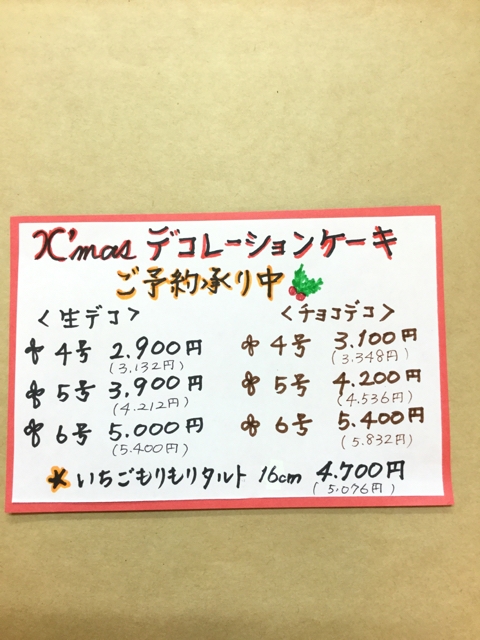 X'mas デコレーションケーキ
ご予約承り中
＜生デコ＞
4号 2.900円
(3.132円)
5号 3.900円
(4.212円)
6号 5.000円
(5.400円)
＜チョコデコ＞
4号 3.100円
(3.348円)
5号 4.200円
(4.536円)
6号 5.400円
(5.832円)
いちごもりもりタルト 16cm 4.700円
(5.076円)